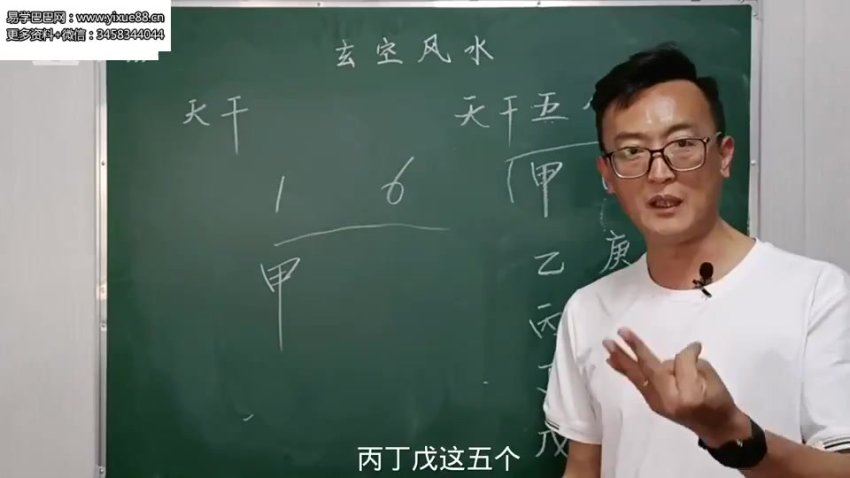 易学巴巴网：www.yixue88.cn
更多资料+微信：3458344044
玄空风水
天干
天干五
1 6
甲
甲
乙 庚
丙
戊
丙丁戊这五个